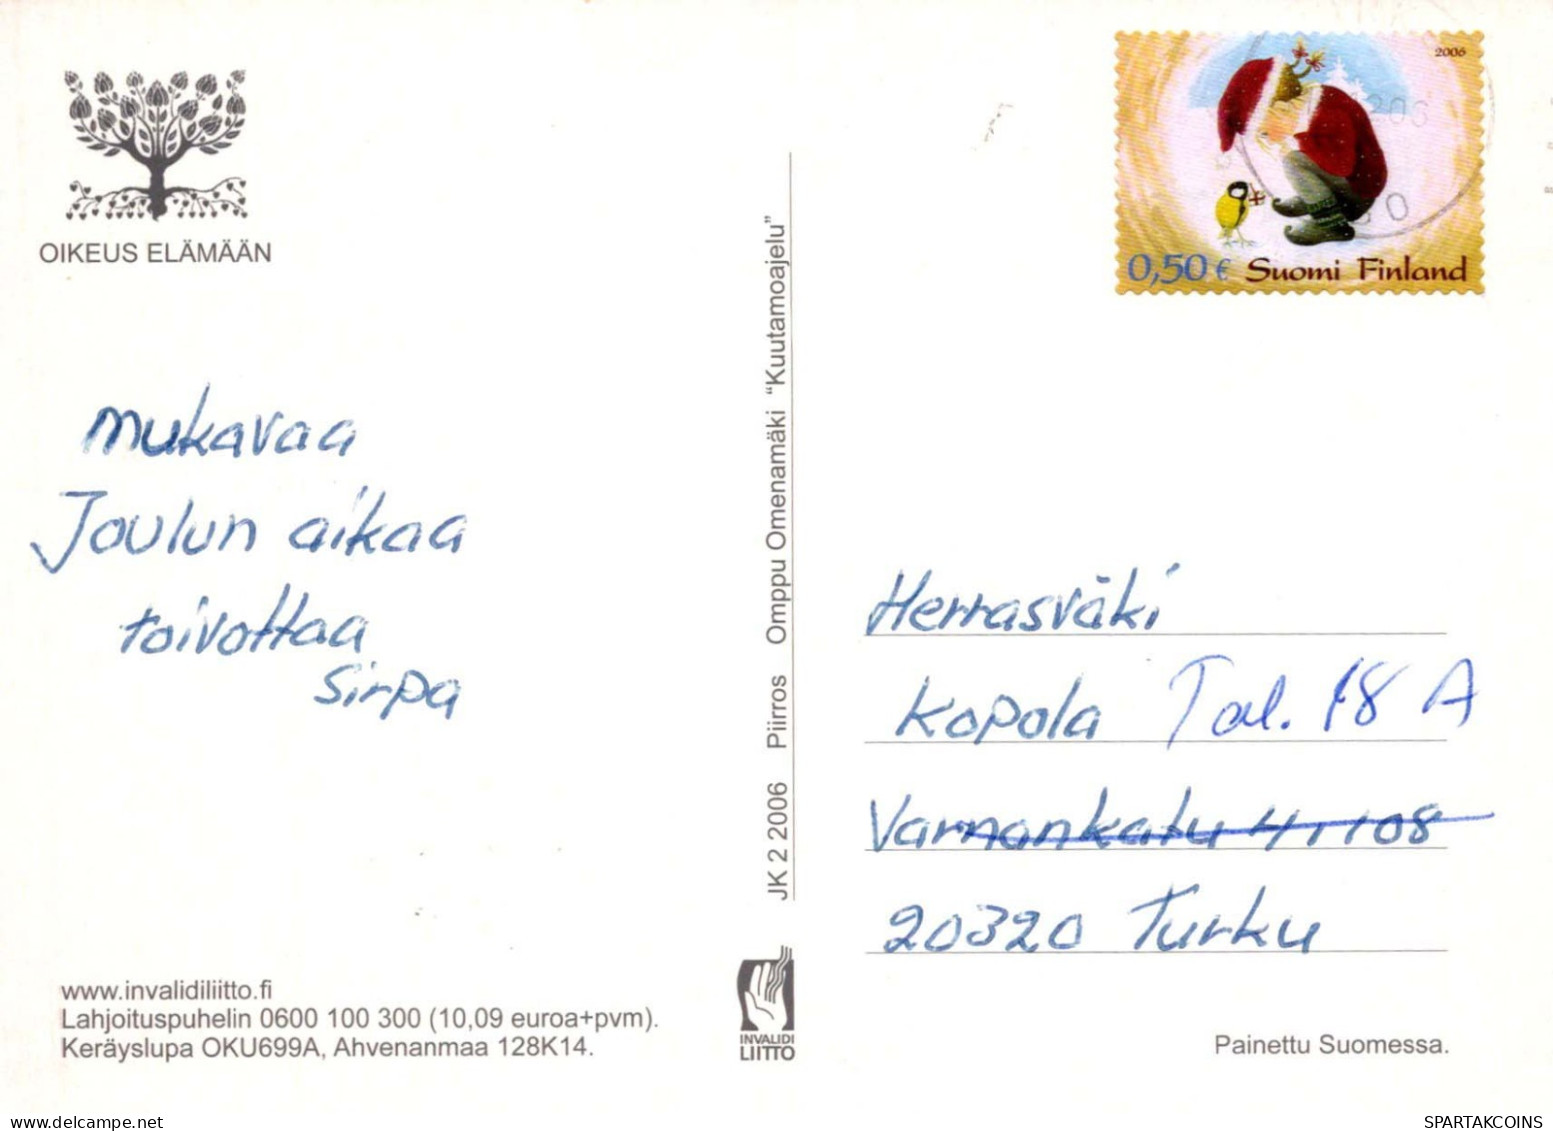 OIKEUS ELÄMÄÄN
mukavaa
Joulun aikaa
toivottaa
Sirpa
www.invalidiliitto.fi
Lahjoituspuhelin 0600 100 300 (10,09 euroa+pvm).
Keräyslupa OKU699A, Ahvenanmaa 128K14.
JK 2 2006 Piirros Omppu Omenamäki "Kuutamoajelu"
INVALIDI
LIITTO
2006
0,50 € Suomi Finland
Herrasväki
Kopola Tal. 18 A
20320 Turku
Painettu Suomessa.
posted-stamps.com
SPARTAKCOINS